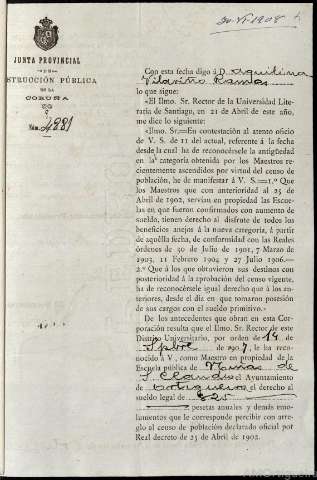 20-VI-1908
JUNTA PROVINCIAL
DE
STRUCCIÓN PÚBLICA
DE LA
CORUÑA
Núm. 4281
Con esta fecha digo á D. Aquilina
Vilariño Ramos
lo que sigue:
«El Ilmo. Sr. Rector de la Universidad Lite-
raria de Santiago, en 21 de Abril de este año,
me dice lo siguiente:
«Ilmo. Sr.=En contestación al atento oficio
de V. S. de 11 del actual, referente á la fecha
desde la cual ha de reconocérsele la antigüedad
en la categoría obtenida por los Maestros re-
cientemente ascendidos por virtud del censo de
población, he de manifestar á V. S.=1.º Que
los Maestros que con anterioridad al 25 de
Abril de 1902, servían en propiedad las Escue-
las en que fueron confirmados con aumento de
sueldo, tienen derecho al disfrute de todos los
beneficios anejos á la nueva categoría, á partir
de aquélla fecha, de conformidad con las Reales
órdenes de 30 de Julio de 1901, 7 Marzo de
1903, 11 Febrero 1904 y 27 Julio 1906.—
2.º Que á los que obtuvieron sus destinos con
posterioridad á la aprobación del censo vigente,
ha de reconocérsele igual derecho que á los an-
teriores, desde el día en que tomaron posesión
de sus cargos con el sueldo primitivo.»
De los antecedentes que obran en esta Cor-
poración resulta que el Ilmo. Sr. Rector de este
Distrito Universitario, por orden de 14 de
Spbre de 1907, le ha reco-
nocido á V. como Maestro en propiedad de la
Escuela pública de Niñas de
S. Claudio el Ayuntamiento
de Ortigueira el derecho al
sueldo legal de 825
pesetas anuales y demás emo-
lumentos que le corresponde percibir con arre-
glo al censo de población declarado oficial por
Real decreto de 25 de Abril de 1902.